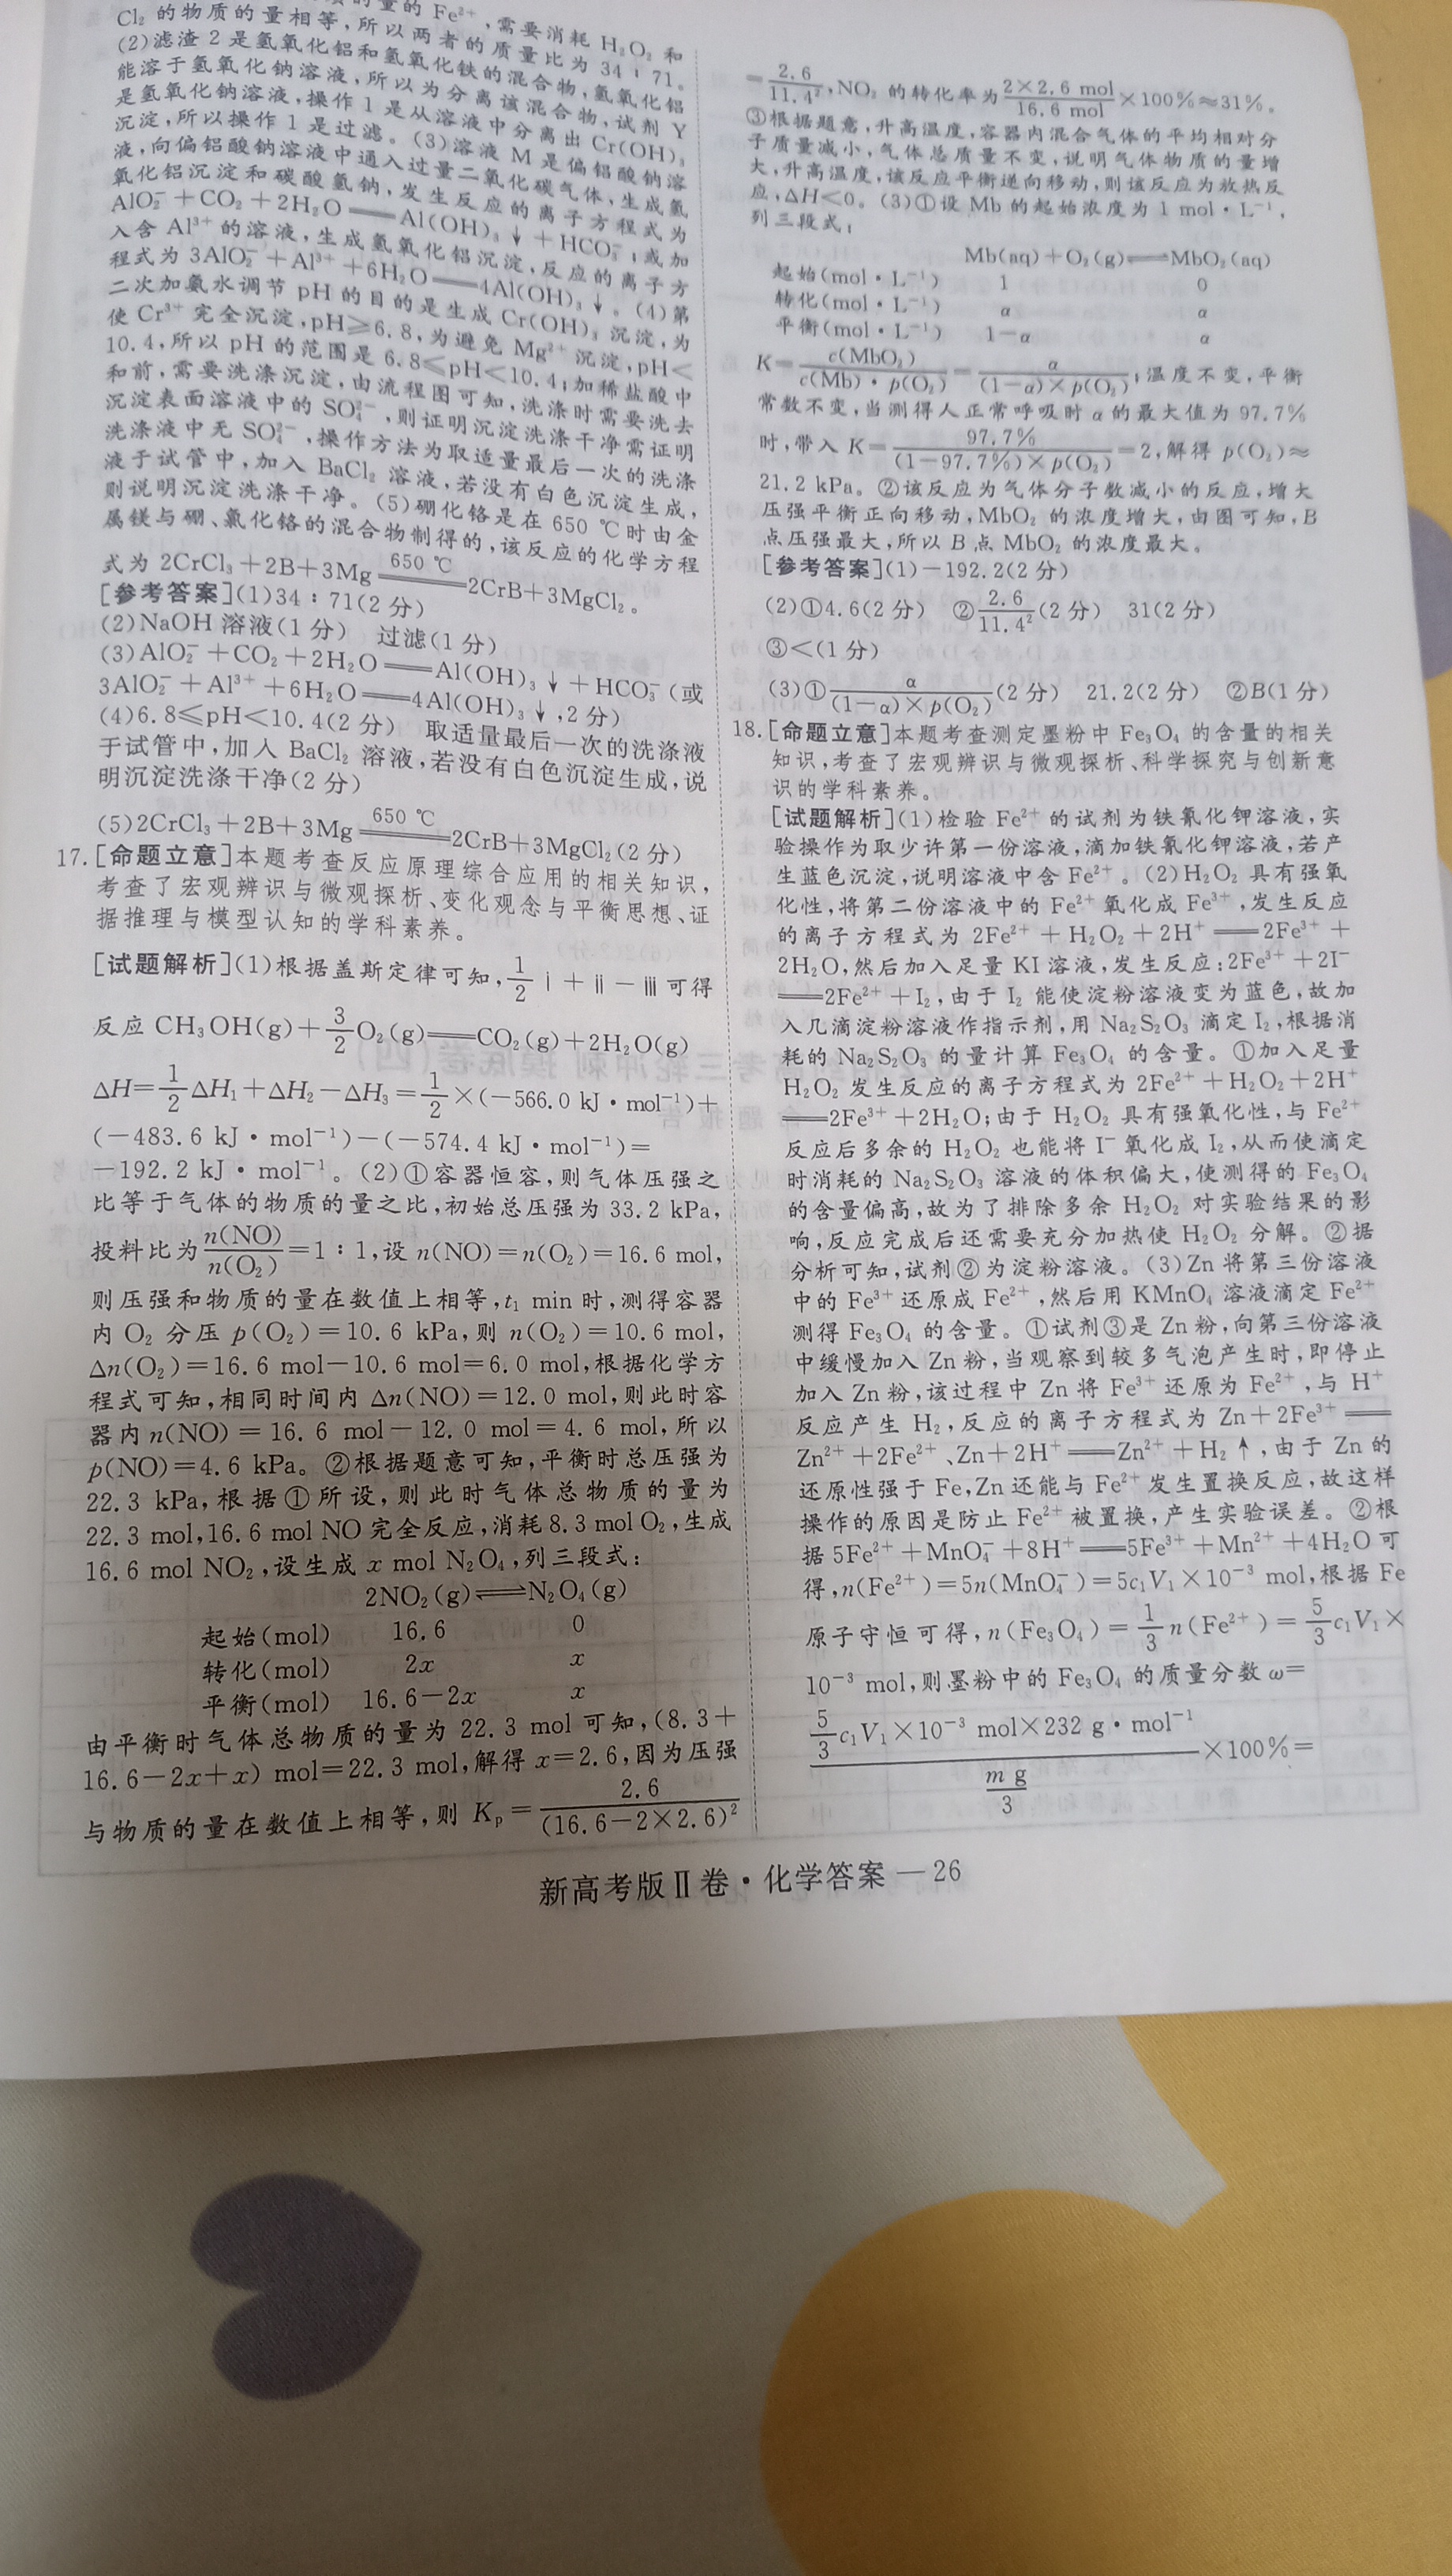 的量的 Fe²⁺,需要消耗 H₂O₂ 和
Cl₂ 的物质的量相等,所以两者的质量比为 34∶71。
(2)滤渣 2 是氢氧化铝和氢氧化铁的混合物,氢氧化铝
能溶于氢氧化钠溶液,所以为分离该混合物,试剂 Y
是氢氧化钠溶液,操作 1 是从溶液中分离出 Cr(OH)₃
沉淀,所以操作 1 是过滤。(3)溶液 M 是偏铝酸钠溶
液,向偏铝酸钠溶液中通入过量二氧化碳气体,生成氢
氧化铝沉淀和碳酸氢钠,发生反应的离子方程式为
AlO₂⁻+CO₂+2H₂O══Al(OH)₃↓+HCO₃⁻;或加
入含 Al³⁺ 的溶液,生成氢氧化铝沉淀,反应的离子方
程式为 3AlO₂⁻+Al³⁺+6H₂O══4Al(OH)₃↓。(4)第
二次加氨水调节 pH 的目的是生成 Cr(OH)₃ 沉淀,为
使 Cr³⁺ 完全沉淀,pH≥6.8,为避免 Mg²⁺ 沉淀,pH<
10.4,所以 pH 的范围是 6.8≤pH<10.4;加稀盐酸中
和前,需要洗涤沉淀,由流程图可知,洗涤时需要洗去
沉淀表面溶液中的 SO₄²⁻,则证明沉淀洗涤干净需证明
洗涤液中无 SO₄²⁻,操作方法为取适量最后一次的洗涤
液于试管中,加入 BaCl₂ 溶液,若没有白色沉淀生成,
则说明沉淀洗涤干净。(5)硼化铬是在 650 ℃时由金
属镁与硼、氯化铬的混合物制得的,该反应的化学方程
式为 2CrCl₃+2B+3Mg══(650 ℃)2CrB+3MgCl₂。
[参考答案](1)34∶71(2 分)
(2)NaOH 溶液(1 分) 过滤(1 分)
(3)AlO₂⁻+CO₂+2H₂O══Al(OH)₃↓+HCO₃⁻(或
3AlO₂⁻+Al³⁺+6H₂O══4Al(OH)₃↓,2 分)
(4)6.8≤pH<10.4(2 分) 取适量最后一次的洗涤液
于试管中,加入 BaCl₂ 溶液,若没有白色沉淀生成,说
明沉淀洗涤干净(2 分)
(5)2CrCl₃+2B+3Mg══(650 ℃)2CrB+3MgCl₂(2 分)
17.[命题立意]本题考查反应原理综合应用的相关知识,
考查了宏观辨识与微观探析、变化观念与平衡思想、证
据推理与模型认知的学科素养。
[试题解析](1)根据盖斯定律可知,1/2 ⅰ+ⅱ-ⅲ可得
反应 CH₃OH(g)+3/2O₂(g)══CO₂(g)+2H₂O(g)
ΔH=1/2ΔH₁+ΔH₂-ΔH₃=1/2×(-566.0 kJ·mol⁻¹)+
(-483.6 kJ·mol⁻¹)-(-574.4 kJ·mol⁻¹)=
-192.2 kJ·mol⁻¹。(2)①容器恒容,则气体压强之
比等于气体的物质的量之比,初始总压强为 33.2 kPa,
投料比为n(NO)/n(O₂)=1∶1,设 n(NO)=n(O₂)=16.6 mol,
则压强和物质的量在数值上相等,t₁ min 时,测得容器
内 O₂ 分压 p(O₂)=10.6 kPa,则 n(O₂)=10.6 mol,
Δn(O₂)=16.6 mol-10.6 mol=6.0 mol,根据化学方
程式可知,相同时间内 Δn(NO)=12.0 mol,则此时容
器内 n(NO)=16.6 mol-12.0 mol=4.6 mol,所以
p(NO)=4.6 kPa。②根据题意可知,平衡时总压强为
22.3 kPa,根据①所设,则此时气体总物质的量为
22.3 mol,16.6 mol NO 完全反应,消耗 8.3 mol O₂,生成
16.6 mol NO₂,设生成 x mol N₂O₄,列三段式:
2NO₂(g)⇌N₂O₄(g)
起始(mol) 16.6 0
转化(mol) 2x x
平衡(mol) 16.6-2x x
由平衡时气体总物质的量为 22.3 mol 可知,(8.3+
16.6-2x+x) mol=22.3 mol,解得 x=2.6,因为压强
与物质的量在数值上相等,则 Kₚ=2.6/(16.6-2×2.6)²
=2.6/11.4²,NO₂ 的转化率为(2×2.6 mol)/(16.6 mol)×100%≈31%。
③根据题意,升高温度,容器内混合气体的平均相对分
子质量减小,气体总质量不变,说明气体物质的量增
大,升高温度,该反应平衡逆向移动,则该反应为放热反
应,ΔH<0。(3)①设 Mb 的起始浓度为 1 mol·L⁻¹,
列三段式:
Mb(aq)+O₂(g)⇌MbO₂(aq)
起始(mol·L⁻¹) 1 0
转化(mol·L⁻¹) α α
平衡(mol·L⁻¹) 1-α α
K=c(MbO₂)/(c(Mb)·p(O₂))=α/((1-α)×p(O₂));温度不变,平衡
常数不变,当测得人正常呼吸时 α 的最大值为 97.7%
时,带入 K=97.7%/((1-97.7%)×p(O₂))=2,解得 p(O₂)≈
21.2 kPa。②该反应为气体分子数减小的反应,增大
压强平衡正向移动,MbO₂ 的浓度增大,由图可知,B
点压强最大,所以 B 点 MbO₂ 的浓度最大。
[参考答案](1)-192.2(2 分)
(2)①4.6(2 分) ②2.6/11.4²(2 分) 31(2 分)
③<(1 分)
(3)①α/((1-α)×p(O₂))(2 分) 21.2(2 分) ②B(1 分)
18.[命题立意]本题考查测定墨粉中 Fe₃O₄ 的含量的相关
知识,考查了宏观辨识与微观探析、科学探究与创新意
识的学科素养。
[试题解析](1)检验 Fe²⁺ 的试剂为铁氰化钾溶液,实
验操作为取少许第一份溶液,滴加铁氰化钾溶液,若产
生蓝色沉淀,说明溶液中含 Fe²⁺。(2)H₂O₂ 具有强氧
化性,将第二份溶液中的 Fe²⁺氧化成 Fe³⁺,发生反应
的离子方程式为 2Fe²⁺+H₂O₂+2H⁺══2Fe³⁺+
2H₂O,然后加入足量 KI 溶液,发生反应:2Fe³⁺+2I⁻
══2Fe²⁺+I₂,由于 I₂ 能使淀粉溶液变为蓝色,故加
入几滴淀粉溶液作指示剂,用 Na₂S₂O₃ 滴定 I₂,根据消
耗的 Na₂S₂O₃ 的量计算 Fe₃O₄ 的含量。①加入足量
H₂O₂ 发生反应的离子方程式为 2Fe²⁺+H₂O₂+2H⁺
══2Fe³⁺+2H₂O;由于 H₂O₂ 具有强氧化性,与 Fe²⁺
反应后多余的 H₂O₂ 也能将 I⁻ 氧化成 I₂,从而使滴定
时消耗的 Na₂S₂O₃ 溶液的体积偏大,使测得的 Fe₃O₄
的含量偏高,故为了排除多余 H₂O₂ 对实验结果的影
响,反应完成后还需要充分加热使 H₂O₂ 分解。②据
分析可知,试剂②为淀粉溶液。(3)Zn 将第三份溶液
中的 Fe³⁺还原成 Fe²⁺,然后用 KMnO₄ 溶液滴定 Fe²⁺
测得 Fe₃O₄ 的含量。①试剂③是 Zn 粉,向第三份溶液
中缓慢加入 Zn 粉,当观察到较多气泡产生时,即停止
加入 Zn 粉,该过程中 Zn 将 Fe³⁺还原为 Fe²⁺,与 H⁺
反应产生 H₂,反应的离子方程式为 Zn+2Fe³⁺══
Zn²⁺+2Fe²⁺、Zn+2H⁺══Zn²⁺+H₂↑,由于 Zn 的
还原性强于 Fe,Zn 还能与 Fe²⁺ 发生置换反应,故这样
操作的原因是防止 Fe²⁺ 被置换,产生实验误差。②根
据 5Fe²⁺+MnO₄⁻+8H⁺══5Fe³⁺+Mn²⁺+4H₂O 可
得,n(Fe²⁺)=5n(MnO₄⁻)=5c₁V₁×10⁻³ mol,根据 Fe
原子守恒可得,n(Fe₃O₄)=1/3n(Fe²⁺)=5/3c₁V₁×
10⁻³ mol,则墨粉中的 Fe₃O₄ 的质量分数 ω=
(5/3c₁V₁×10⁻³ mol×232 g·mol⁻¹)/(m g/3)×100%=
新高考版Ⅱ卷·化学答案—26